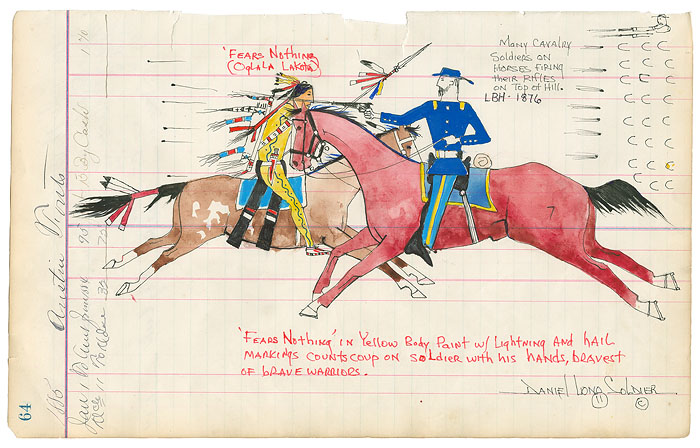 'Fears Nothing
(Oglala Lakota)
Many Cavalry
Soldiers on
Horses firing
their Rifles
on Top of Hill.
LBH - 1876
'Fears Nothing' in Yellow Body Paint w/ Lightning and hail
markings counts coup on soldier with his hands, bravest
of brave warriors.
Daniel Long Soldier
©
©
7
64
Austin